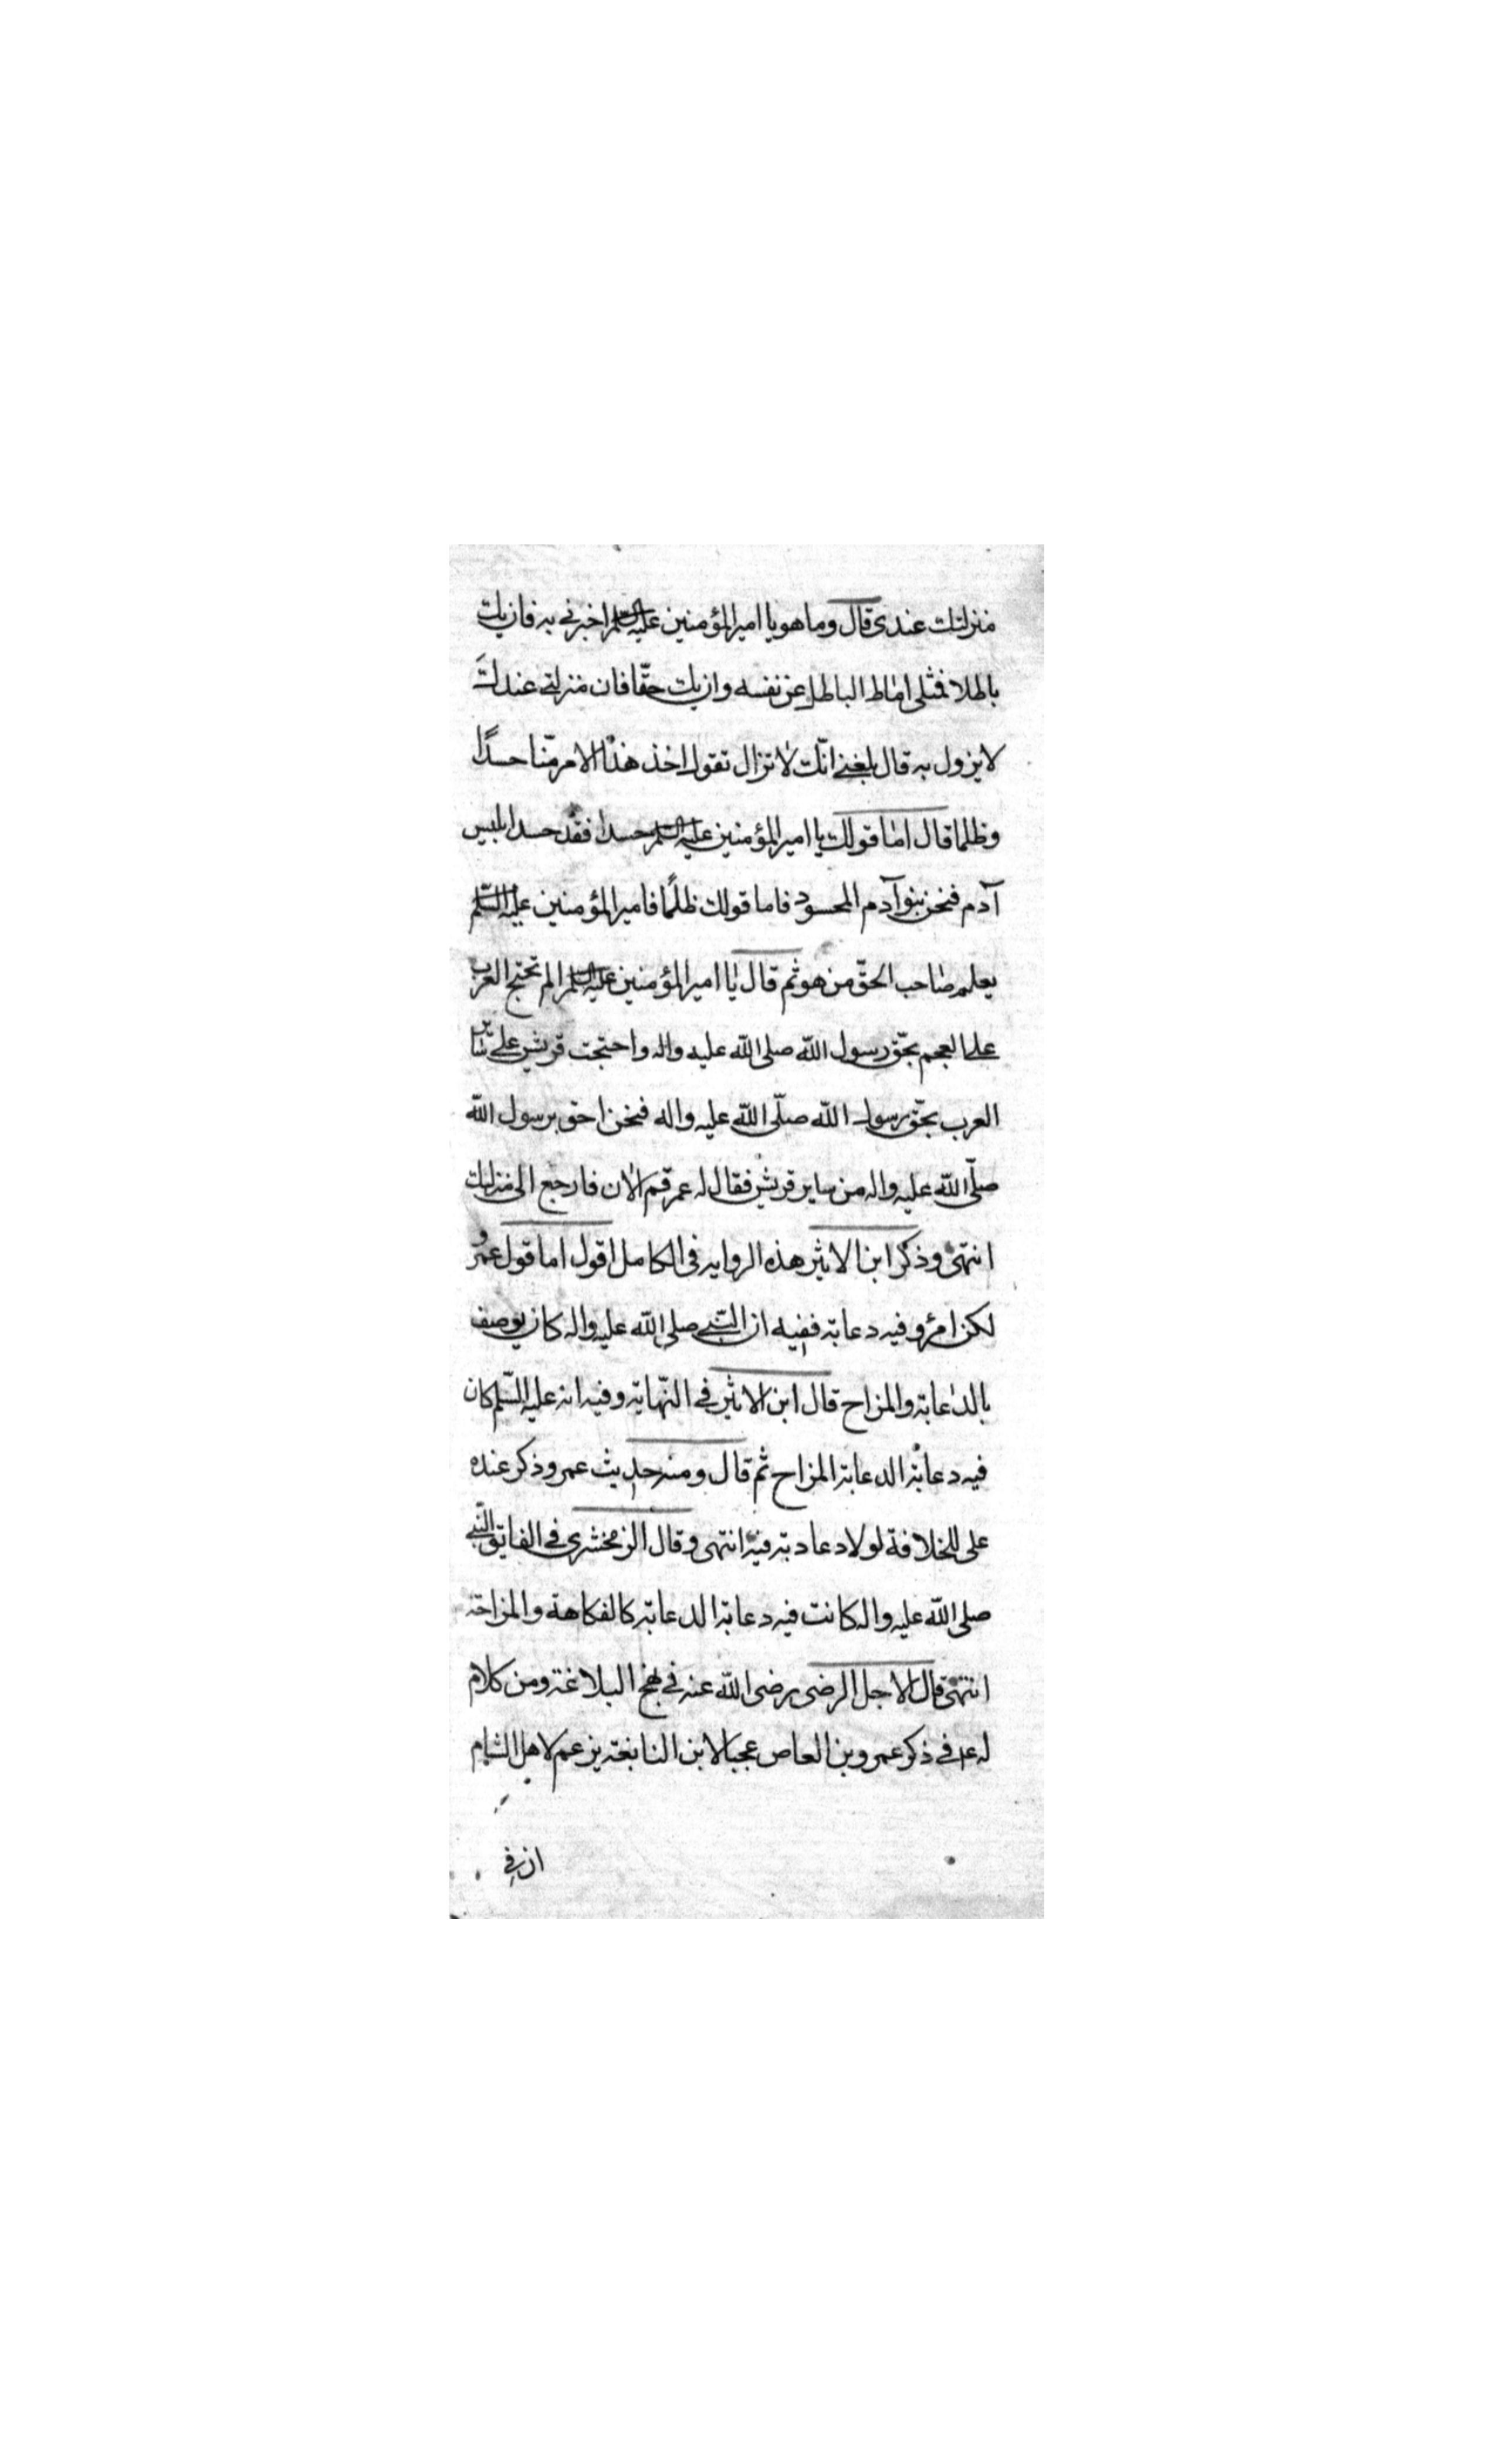 منزلتك عندى قال وما هو يا امير المؤمنين عليه السلم اخبرنى به فان يك
باطلا فمثلى اماط الباطل عن نفسه وان يك حقّا فان منزلتى عندك
لا يزول به قال بلغنى انّك لا تزال تقول اخذ هذا الامر منّا حسدًا
وظلما قال اما قولك يا امير المؤمنين عليه السلم حسدا فقد حسد ابليس
آدم فنحن بنو آدم المحسود فاما قولك ظلمًا فامير المؤمنين عليه السّلم
يعلم صاحب الحقّ من هو ثم قال يا امير المؤمنين عليه السلم الم تحتج العرب
على العجم بحقّ رسول الله صلى الله عليه واله واحتجت قريش على سائر
العرب بحقّ رسول الله صلّى الله عليه واله فنحن احق برسول الله
صلّى الله عليه واله من ساير قريش فقال له عمر قم الان فارجع الى منزلك
انتهى وذكر ابن الاثير هذه الروايه فى الكامل اقول اما قول عمر و
لكن امرؤ فيه دعابة ففيه ان النّبى صلى الله عليه واله كان يوصف
بالدعابة والمزاح قال ابن الاثير فى النّهاية وفيه انه عليه السّلم كان
فيه دعابة الدعابة المزاح ثم قال ومنه حديث عمر وذكر عنده
على للخلافة لولا دعادبة فيه انتهى وقال الزمخشرى فى الفايق النّبى
صلى الله عليه واله كانت فيه دعابة الدعابة كالفكاهة والمزاحة
انتهى قال الاجل الرضى رضى الله عنه فى نهج البلاغة ومن كلام
له ع فى ذكر عمرو بن العاص عجبا لابن النابغة يزعم لاهل الشام
ان فى